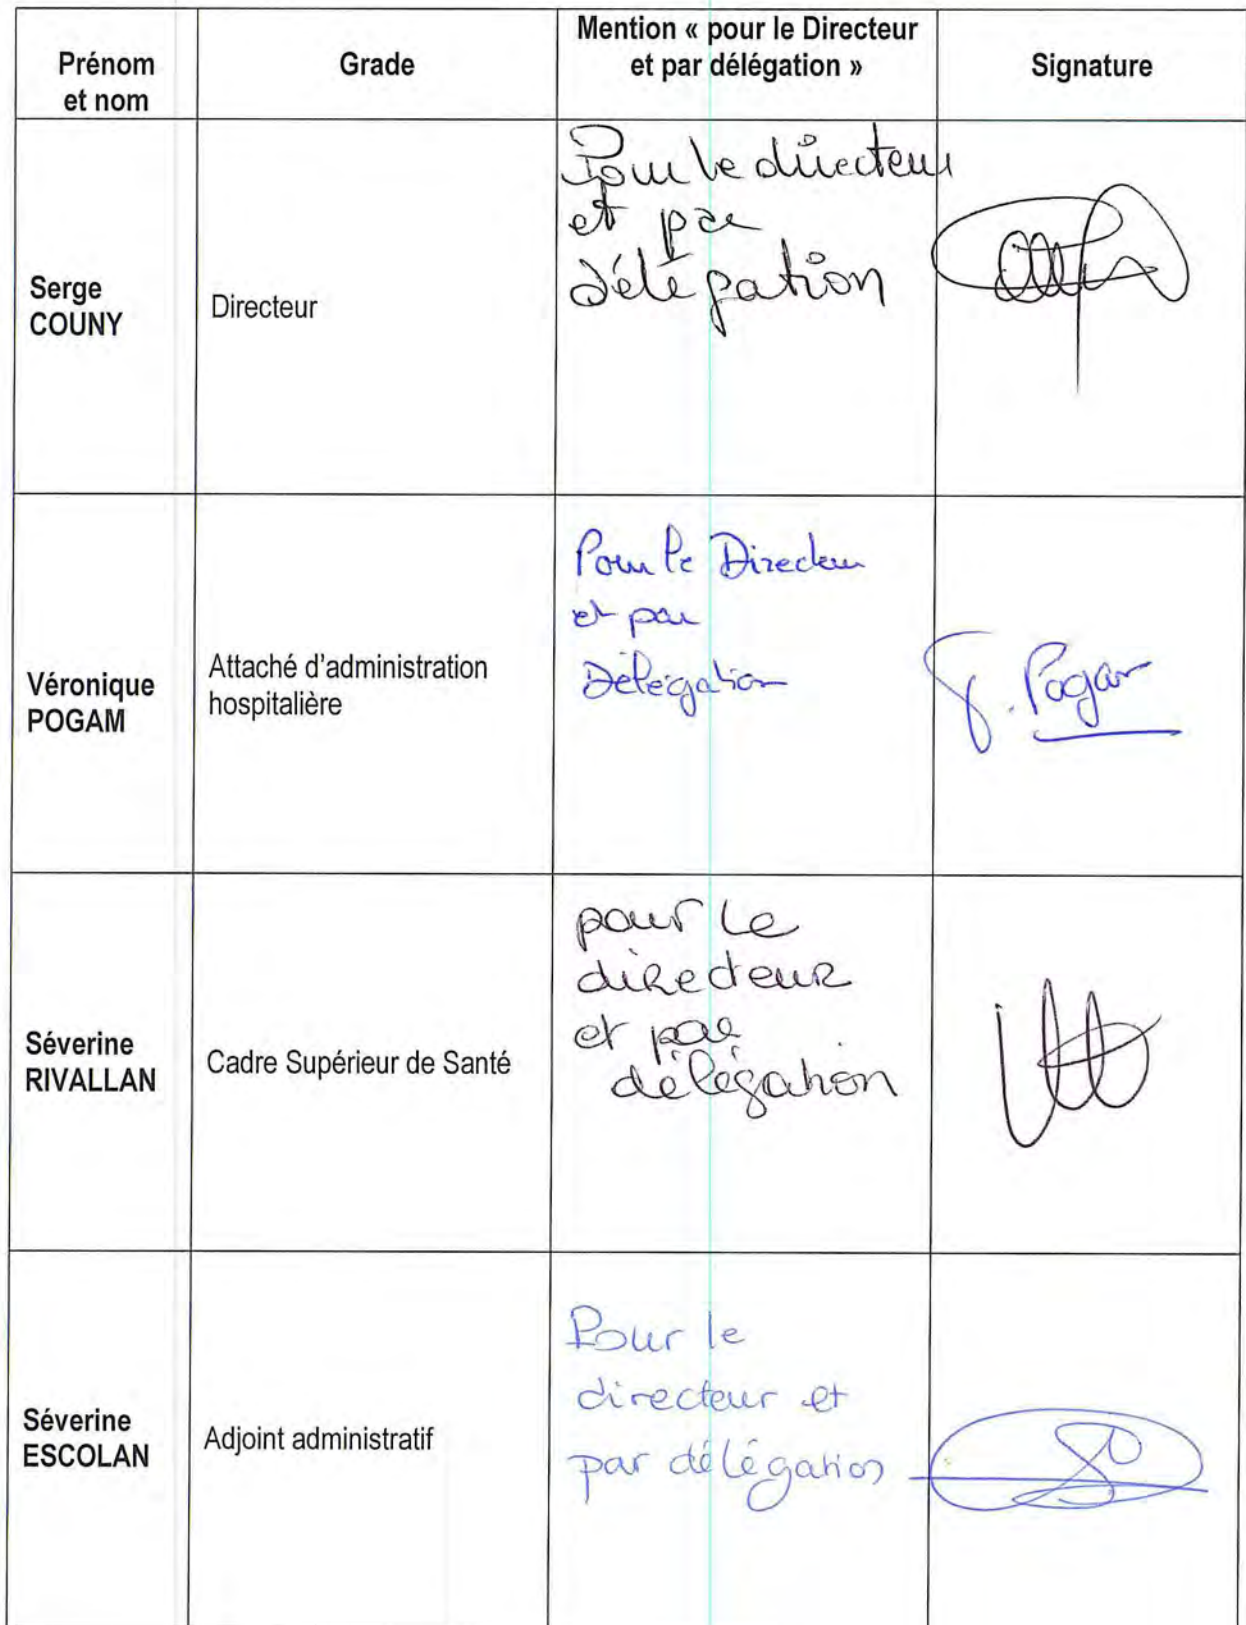 Prénom
et nom
Grade
Mention « pour le Directeur
et par délégation »
Signature
Serge
COUNY
Directeur
Pour le directeur
et par
délégation
Véronique
POGAM
Attaché d'administration
hospitalière
Pour le Directeur
et par
Délégation
V. Pogam
Séverine
RIVALLAN
Cadre Supérieur de Santé
pour le
directeur
et par
délégation
Séverine
ESCOLAN
Adjoint administratif
Pour le
directeur et
par délégation